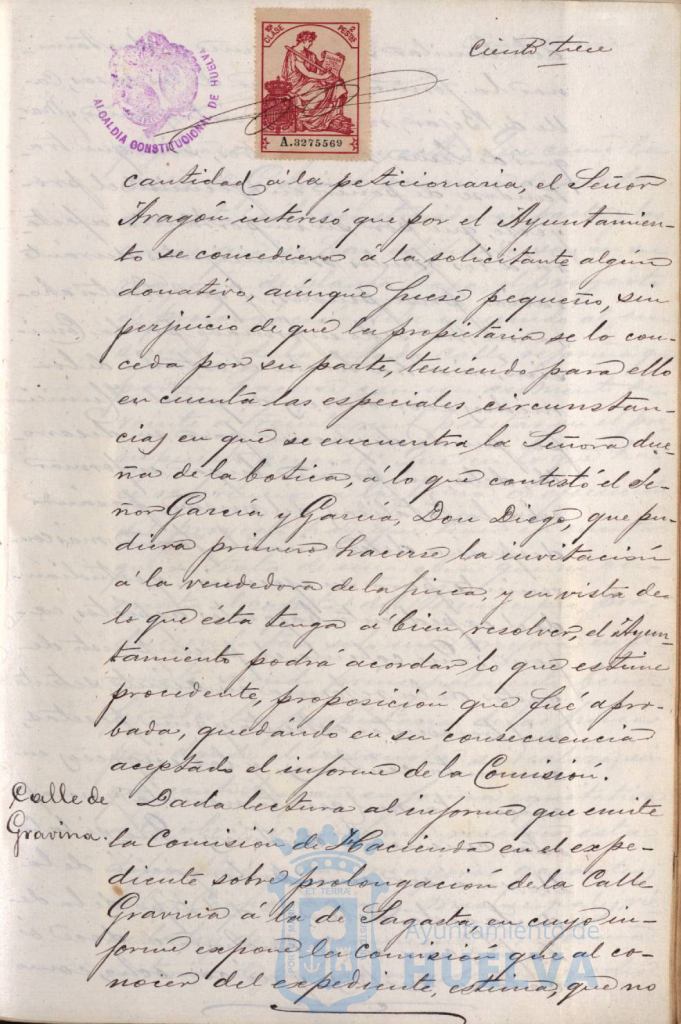 Ciento trece
ALCALDIA CONSTITUCIONAL DE HUELVA
CLASE
PESTAS
A.3275569
cantidad á la peticionaria, el Señor
Aragón interesó que por el Ayuntamien-
to se concediera á la solicitante algún
donativo, aúnque fuese pequeño, sin
perjuicio de que la propietaria se lo con-
ceda por su parte, teniendo para ello
en cuenta las especiales circunstan-
cias en que se encuentra la Señora due-
ña de la botica, á lo que contestó el Se-
ñor García y García, Don Diego, que pu-
diera primero hacerse la invitación
á la vendedora de la finca, y en vista de
lo que ésta tenga á bien resolver, el Ayun-
tamiento podrá acordar lo que estime
procedente, proposición que fué apro-
bada, quedándo en su consecuencia
aceptado el informe de la Comisión.
Calle de
Gravina.
Dada lectura al informe que emite
la Comisión de Hacienda en el expe-
diente sobre prolongación de la Calle
Gravina á la de Sagasta en cuyo in-
forme expone la Comisión que al co-
nocer del expediente, estima, que no
Ayuntamiento de
HUELVA